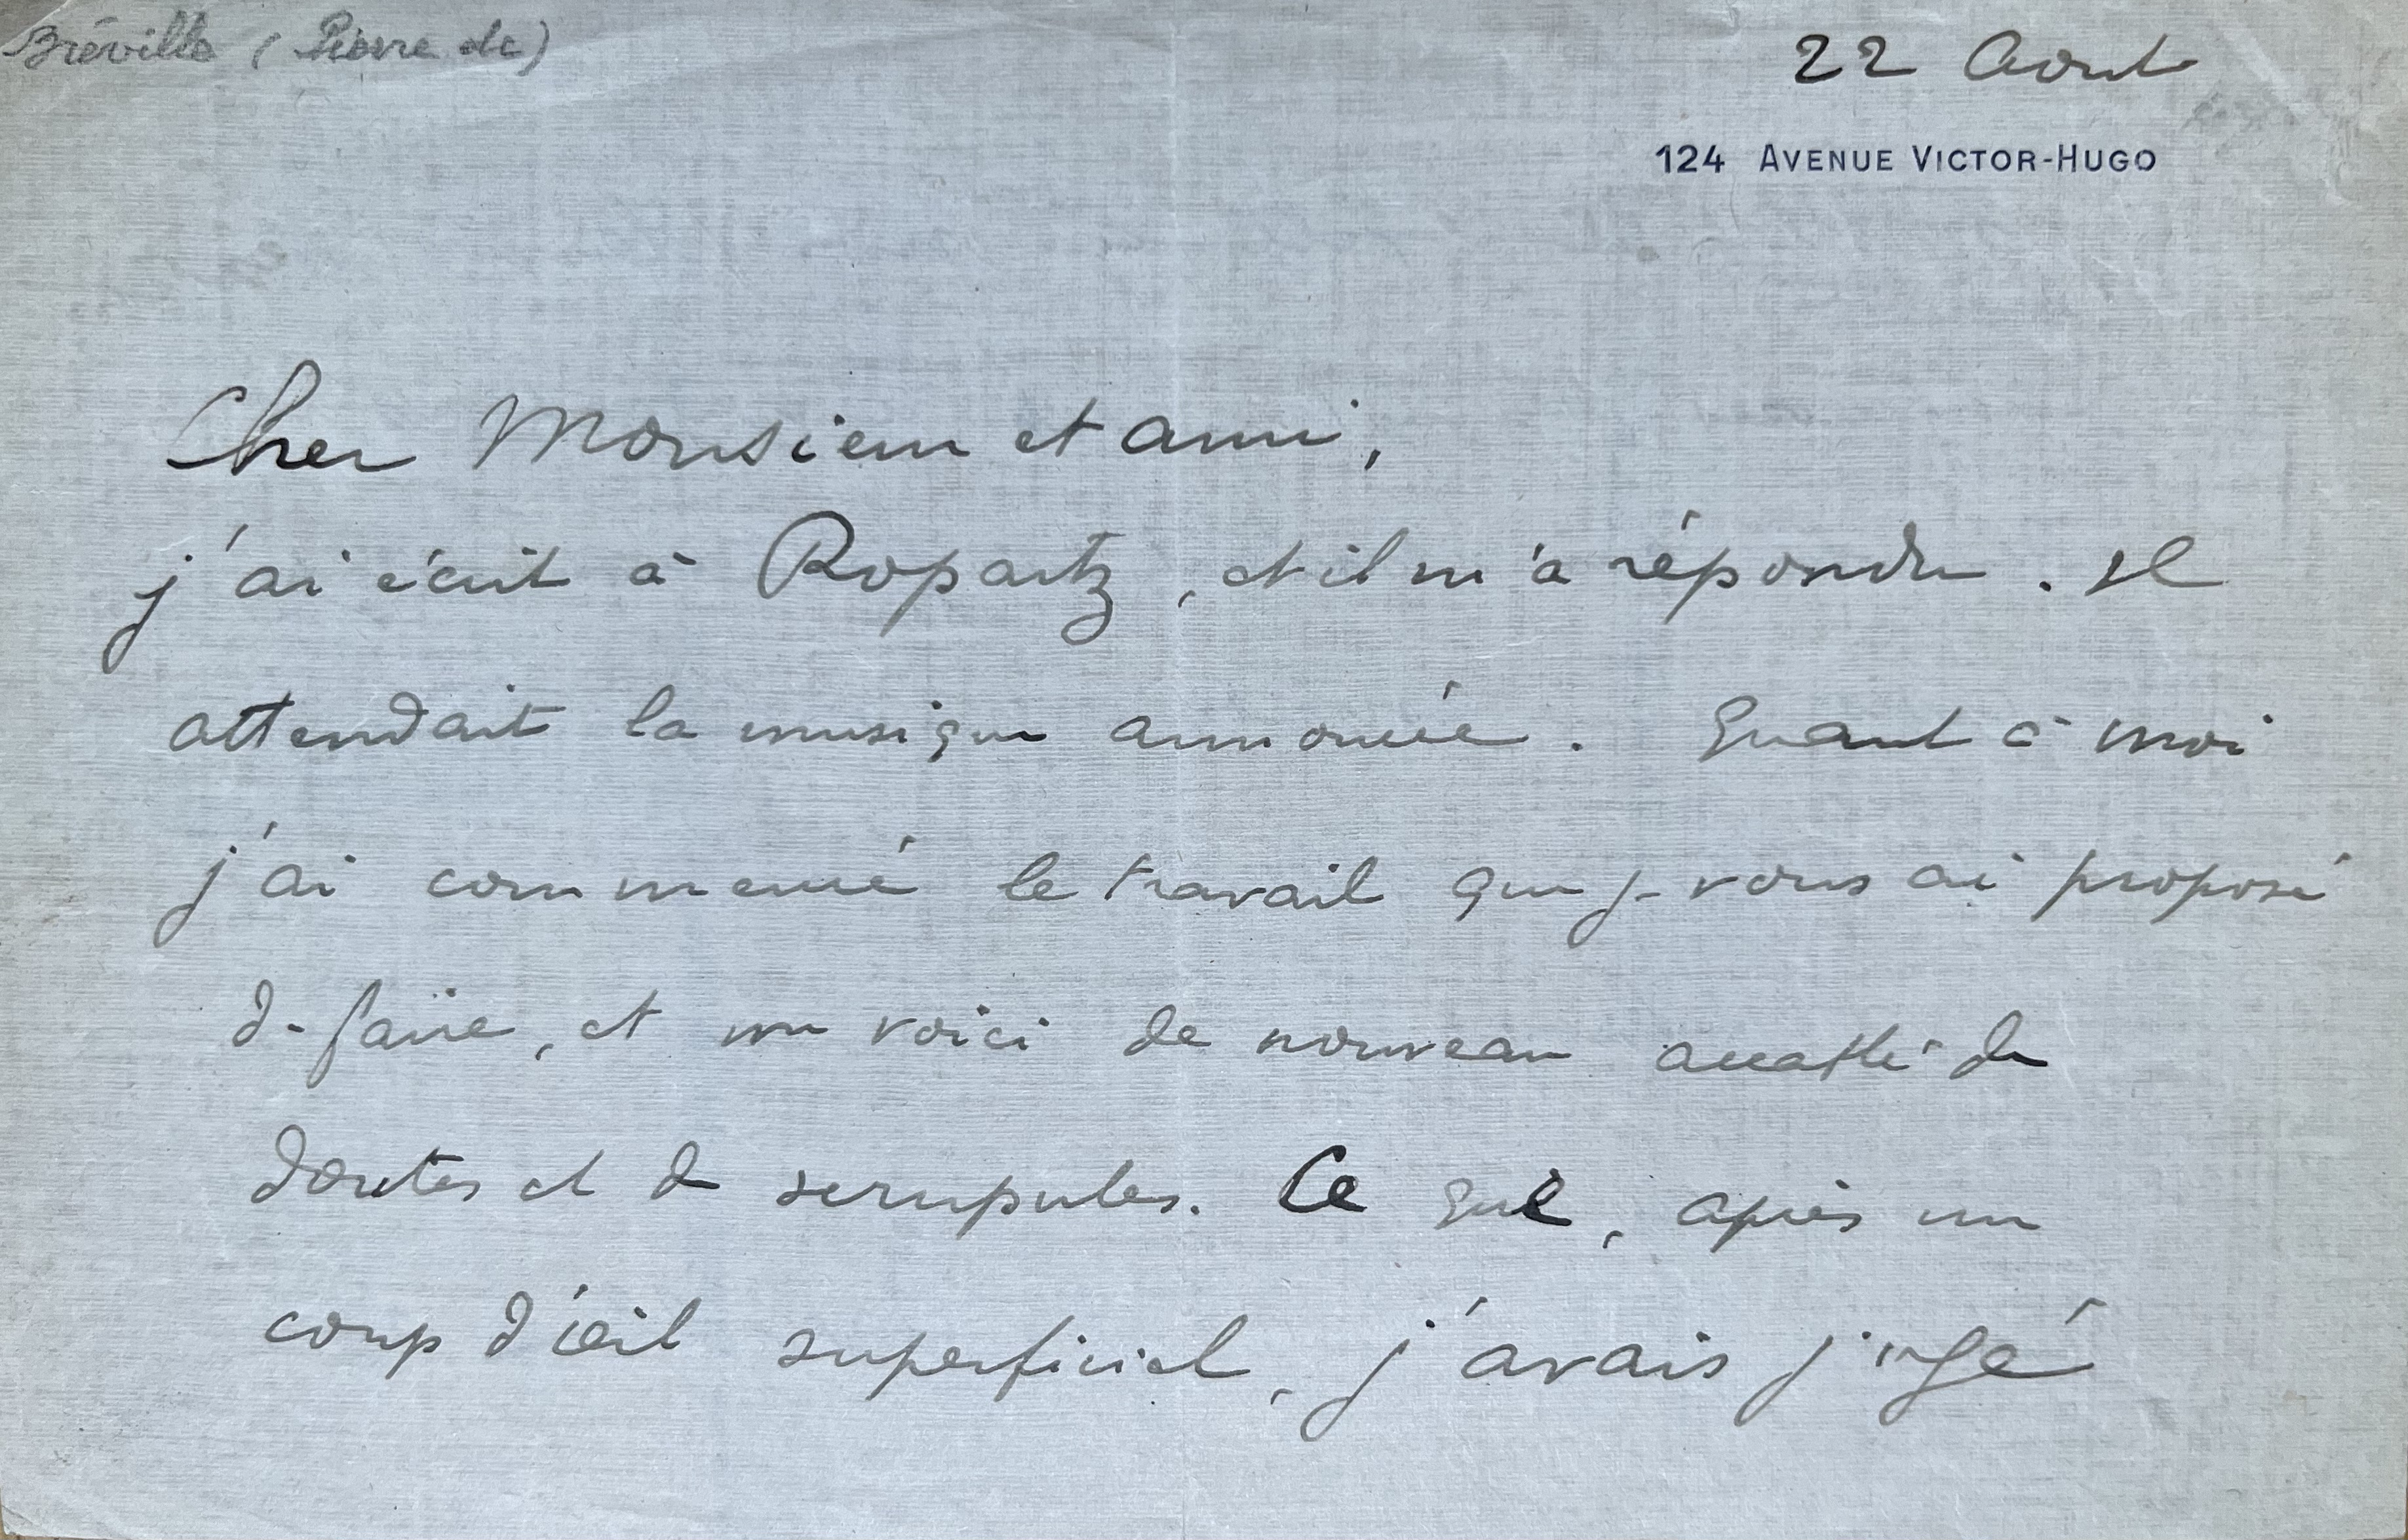 Bréville (Pierre de)
22 Aout
124 AVENUE VICTOR-HUGO
Cher Monsieur et ami,
j'ai écrit à Ropartz, et il m'a répondu. Il
attendait la musique annoncée. Quant à moi
j'ai commencé le travail que je vous ai proposé
de faire, et me voici de nouveau accablé de
doutes et de scrupules. Ce que, après un
coup d'œil superficiel, j'avais jugé